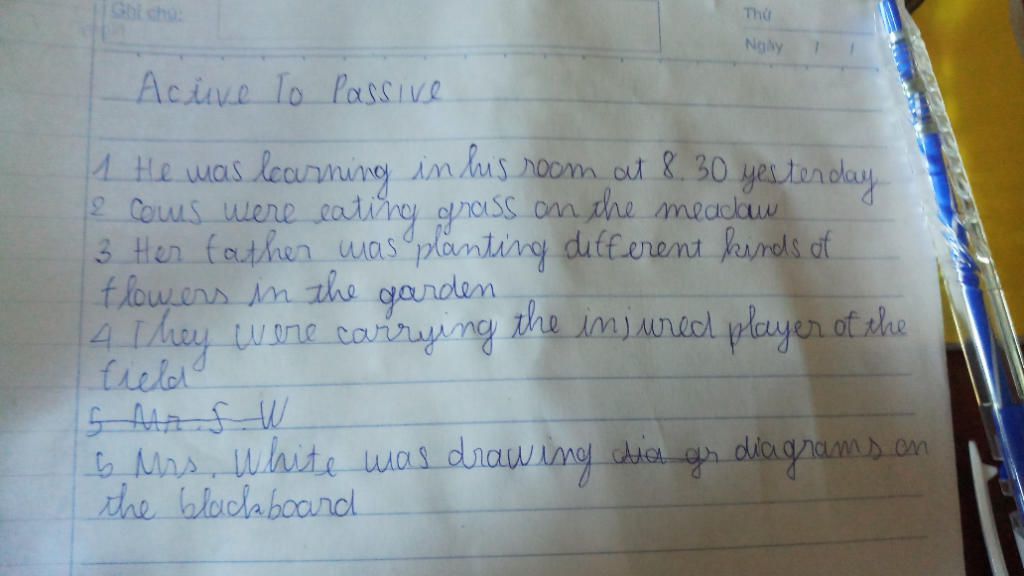 Ghi chú:
Thứ
Ngày / /
Active To Passive
1 He was learning in his room at 8.30 yesterday
2 Cows were eating grass on the meadow
3 Her father was planting different kinds of
flowers in the garden
4 They were carrying the injured player of the
field
5 Mr. S. W
5 Mrs. White was drawing dia gr diagrams on
the blackboard